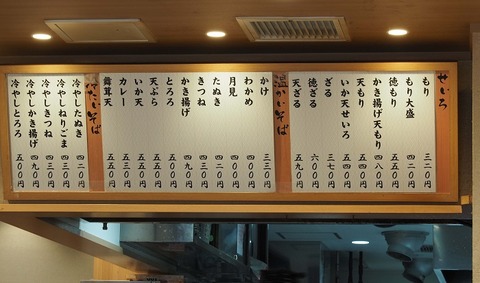 せいろ
もり 三二〇円
もり大盛 四二〇円
徳もり 五五〇円
かき揚げ天もり 四八〇円
天もり 五四〇円
いか天せいろ 五五〇円
ざる 三七〇円
徳ざる 六〇〇円
天ざる 五九〇円
温かいそば
かけ 三三〇円
わかめ 四〇〇円
月見 四〇〇円
たぬき 四二〇円
きつね 四三〇円
かき揚げ 四九〇円
とろろ 五〇〇円
天ぷら 五五〇円
いか天 五五〇円
カレー 五五〇円
舞茸天 五五〇円
冷たいそば
冷やしたぬき 四二〇円
冷やしねりごま 四三〇円
冷やしきつね 四三〇円
冷やしかき揚げ 四九〇円
冷やしとろろ 五〇〇円